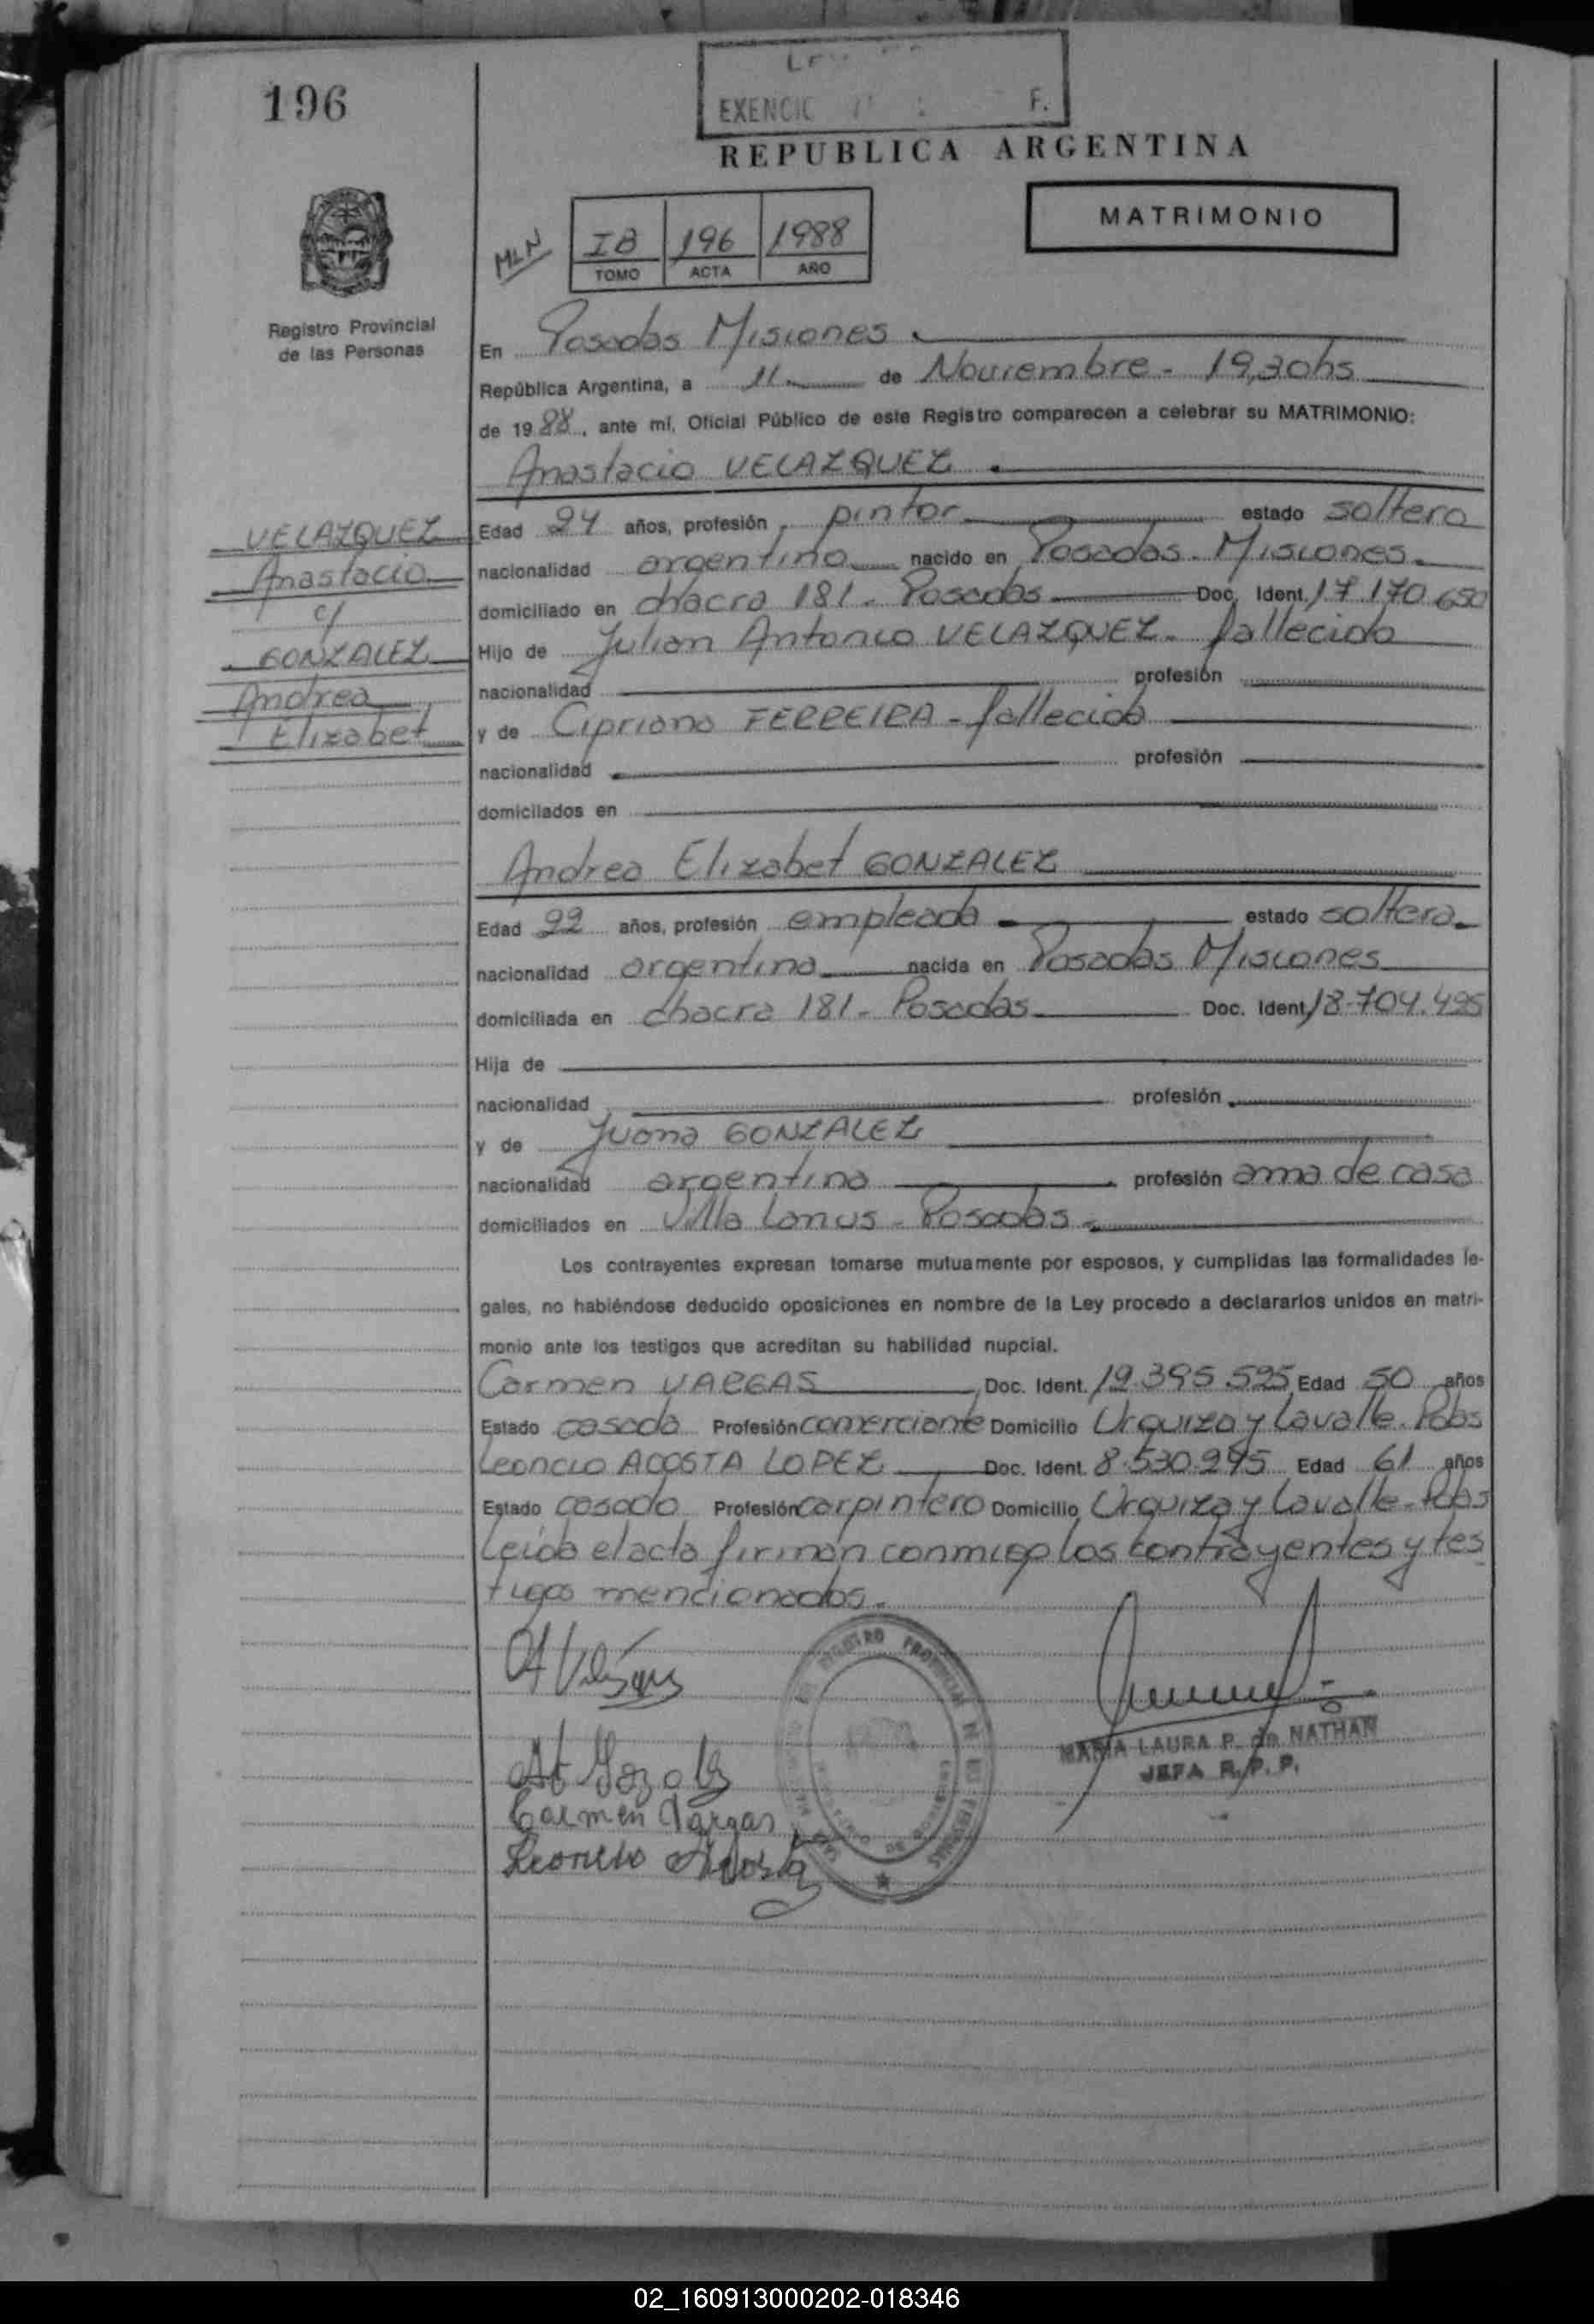 196
EXENCIC F.
REPUBLICA ARGENTINA
MATRIMONIO
MLN
IB 196 1988
TOMO ACTA AÑO
Registro Provincial
de las Personas
En Posadas Misiones
República Argentina, a 11 de Nouiembre - 19,30hs
de 1988, ante mí, Oficial Público de este Registro comparecen a celebrar su MATRIMONIO:
Anastacio VELAZQUEZ
VELAZQUEZ
Anastacio
c/
GONZALEZ
Andrea
Elizabet
Edad 24 años, profesión pintor estado soltero
nacionalidad argentino nacido en Posadas - Misiones
domiciliado en chacra 181 - Posadas Doc. Ident. 17.170.650
Hijo de Julian Antonio VELAZQUEZ - fallecido
nacionalidad profesión
y de Cipriana FERREIRA - fallecida
nacionalidad profesión
domiciliados en
Andrea Elizabet GONZALEZ
Edad 22 años, profesión empleada estado soltera
nacionalidad argentina nacida en Posadas Misiones
domiciliada en chacra 181 - Posadas Doc. Ident. 18.704.495
Hija de
nacionalidad profesión
y de Juana GONZALEZ
nacionalidad argentina profesión ama de casa
domiciliados en Villa Lanus - Posadas
Los contrayentes expresan tomarse mutuamente por esposos, y cumplidas las formalidades le-
gales, no habiéndose deducido oposiciones en nombre de la Ley procedo a declararlos unidos en matri-
monio ante los testigos que acreditan su habilidad nupcial.
Carmen VARGAS Doc. Ident. 19.395.595 Edad 50 años
Estado casada Profesión comerciante Domicilio Urquiza y Lavalle - Pdas
Leoncio ACOSTA LOPEZ Doc. Ident. 8.530.295 Edad 61 años
Estado casado Profesión carpintero Domicilio Urquiza y Lavalle - Pdas
Leida el acta firman conmigo los contrayentes y tes
tigos mencionados.
Carmen Vargas
Leoncio Acosta
MARIA LAURA P. de NATHAN
JEFA R.P.P.
REGISTRO PROVINCIAL
02_160913000202-018346